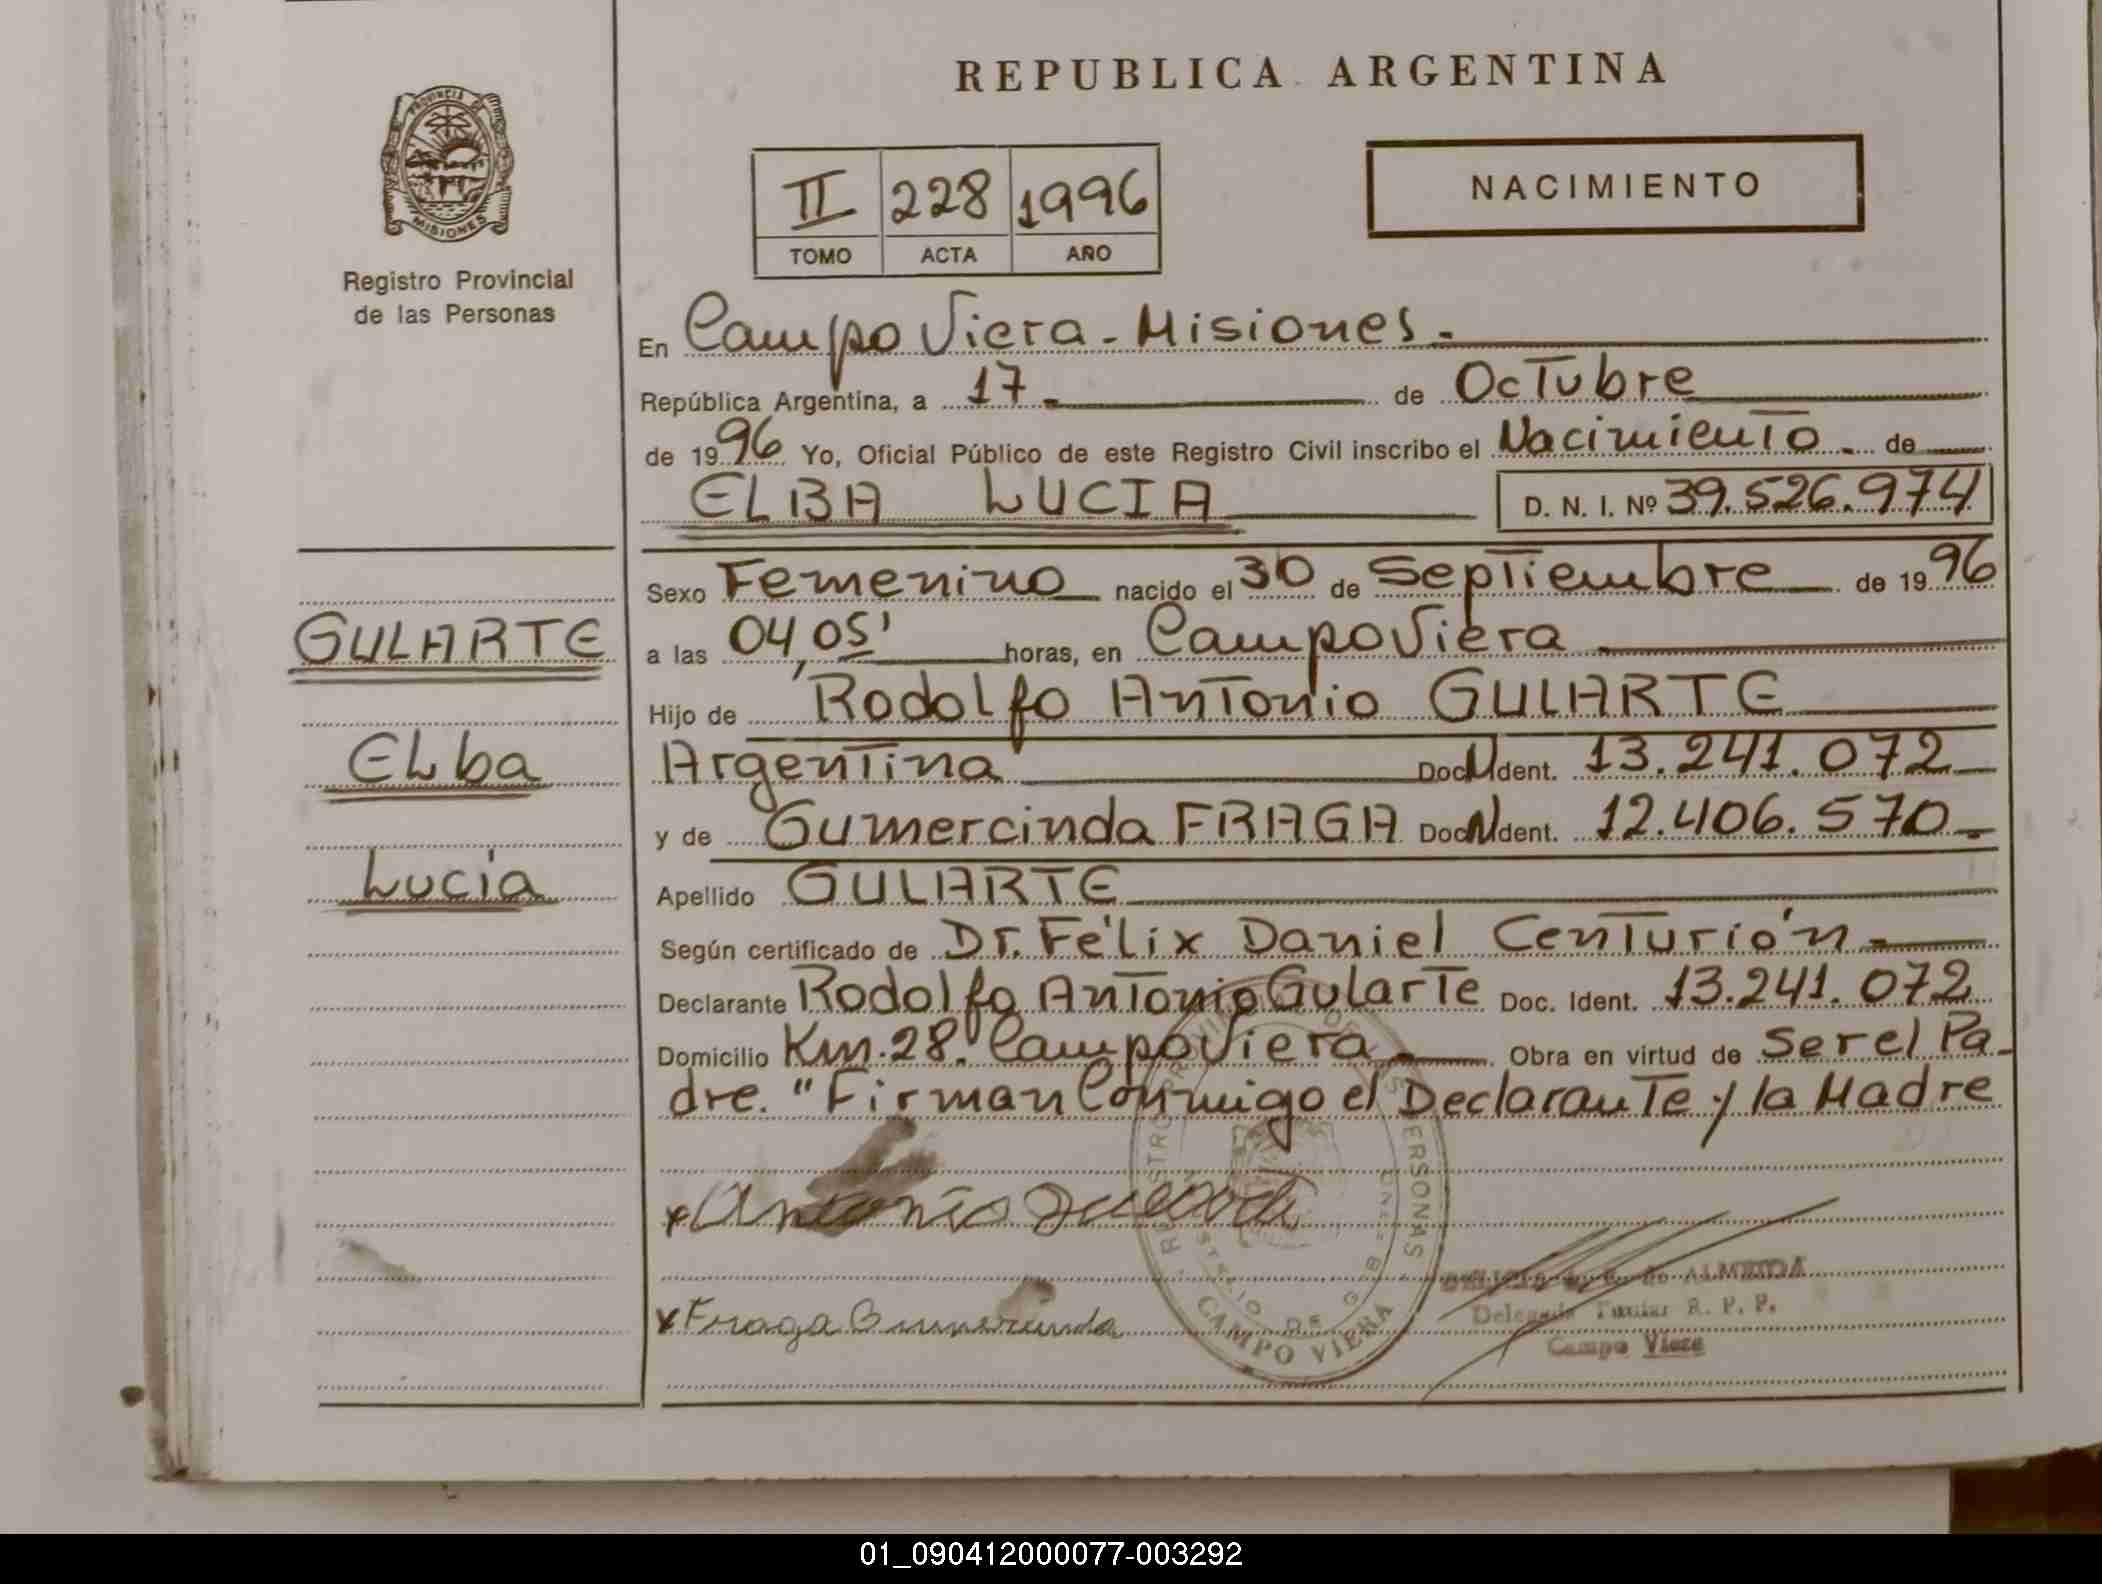 REPUBLICA ARGENTINA
PROVINCIA DE
MISIONES
Registro Provincial
de las Personas
II 228 1996
TOMO ACTA AÑO
NACIMIENTO
En Campo Viera - Misiones.
República Argentina, a 17 de OcTubre
de 1996 Yo, Oficial Público de este Registro Civil inscribo el NacimienTo de
ELBA LUCIA D. N. I. Nº 39.526.974
Sexo Femenino nacido el 30 de SepTiembre de 1996
a las 04,05' horas, en Campo Viera
Hijo de Rodolfo AnTonio GULARTE
ArgenTina Doc. Ident. 13.241.072
y de Gumercinda FRAGA Doc. Ident. 12.406.570
Apellido GULARTE
Según certificado de Dr. Félix Daniel CenTurión
Declarante Rodolfo AnTonio GularTe Doc. Ident. 13.241.072
Domicilio Km. 28. Campo Viera Obra en virtud de Ser el Pa-
dre. "Firman Conmigo el DeclaranTe y la Madre
GULARTE
ELba
Lucia
x Antonio
x Fraga Gumercinda
PERSONAS
CAMPO VIERA
de ALMEIDA
Delegada Titular R. P. P.
Campo Viera
01_090412000077-003292